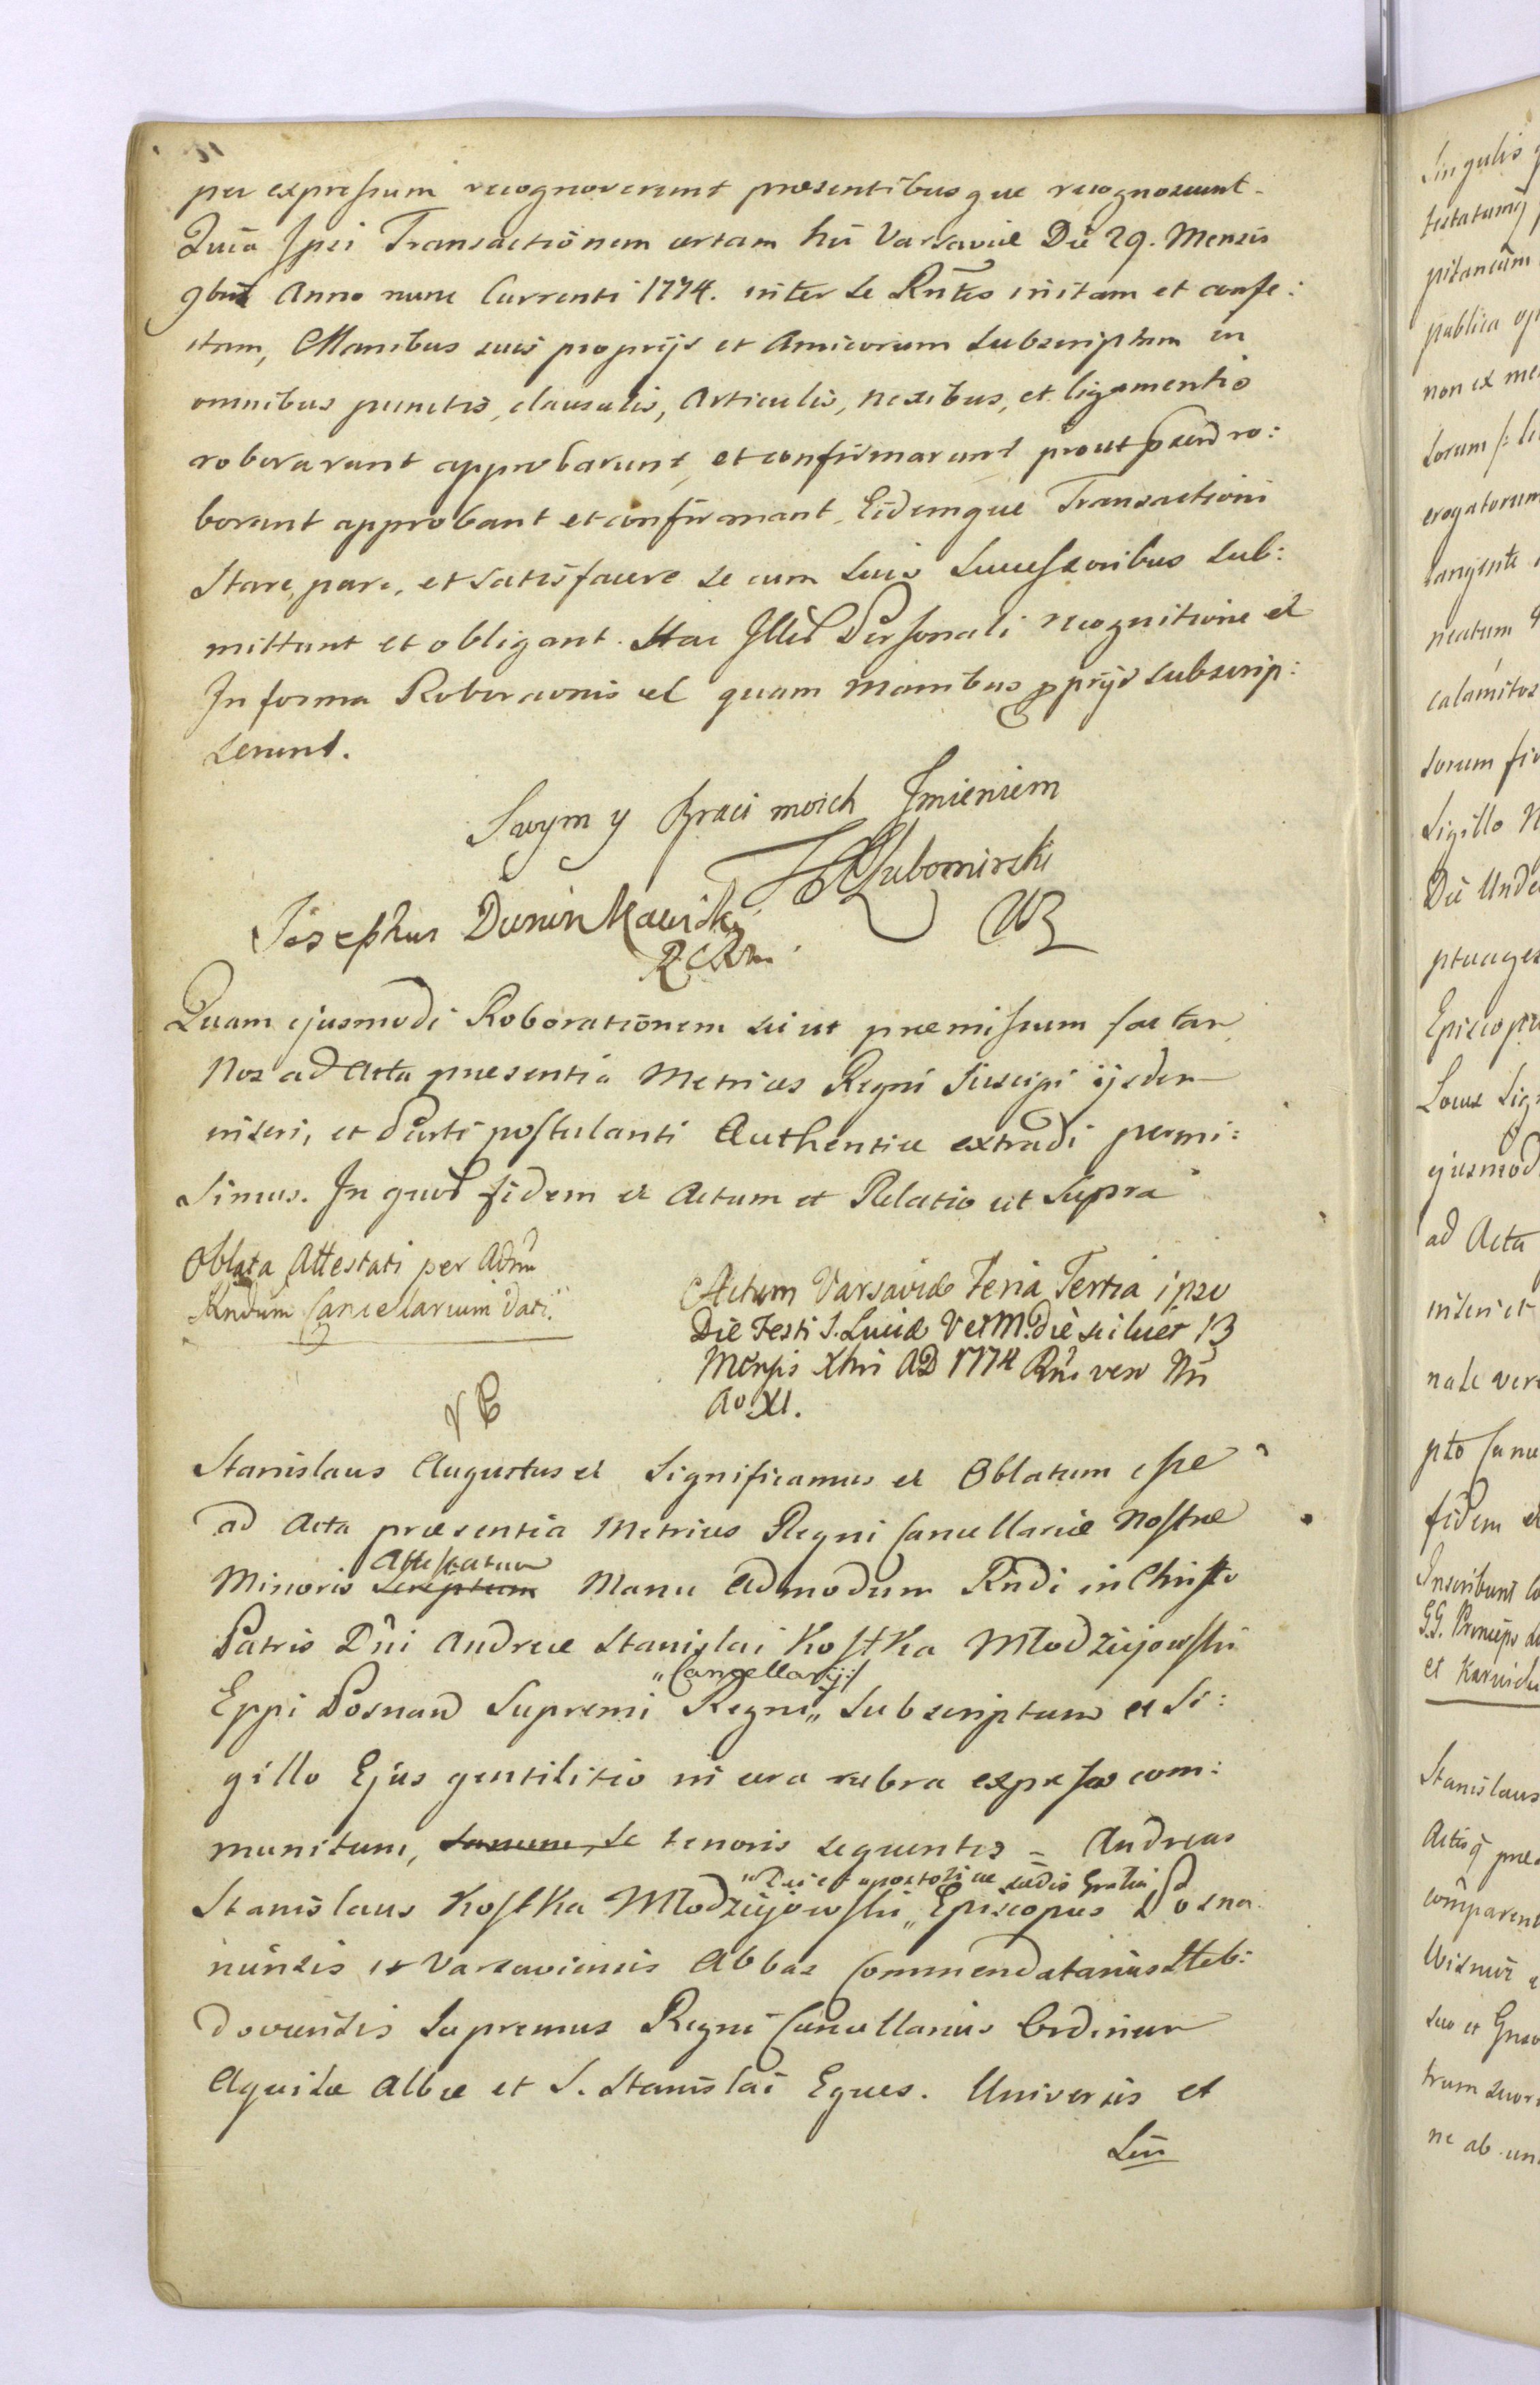 per expressum recognoverunt presentibusque recognoscunt.
Quia Ipsi Transactionem certam hic Varsaviæ Die 29. Mensis
9bris Anno nunc Currenti 1774. inter se Rntes initam et confe:
ctam, Manibus suis proprijs et Amicorum subscriptam in
omnibus punctis, clausulis, Articulis, nexibus, et ligamentis
roborarunt approbarunt, et confirmarunt prout ro:
borant approbant et confirmant, Eidemque Transactioni
Stare, pare, et satisfacere se cum suis Successoribus sub:
mittunt et obligant. Hac Personali recognitione et
In forma Roboraonis et quam manibus pprijs subscrip:
serunt.
Swym y Braci moich Imieniem
Lubomirski
Josephus Dunin Karwicki
Quam ejusmodi Roborationem sic ut præmissum factam
Nos ad Acta præsentia Metrices Regni suscipi ijsdem
inseri, et Parti postulanti Authentice extradi permi:
simus. In quor fidem et Actum et Relatio ut Supra
Oblata Attestati per Adm
Rndum Cancellarium Dati.
Actum Varsaviæ Feria Tertia ipso
Die Festi S. Luciæ V et M. die scilicet 13
Mensis Xbris AD 1774 Rni vero Nri
Ao XI.
Stanislaus Augustus et Significamus et Oblatum esse
ad Acta præsentia Metrices Regni Cancellariæ Nostræ
Minoris Scriptum Attestatum Manu Admodum Rndi in Christo
Patris Dni Andreæ Stanislai Kostka Młodziejowski
Eppi Posnan Supremi Regni „Cancellarij:/ Subscriptum et Si:
gillo Ejus gentilitio in cera rubra expresso com:
munitum, tenoris sequentis = Andreas
Stanislaus Kostka Młodziejowski „Dei et apostolicæ sedis Gratia Episcopus Posna:
niensis et Varsaviensis Abbas Commendatarius Heb:
dovensis Supremus Regni Cancellarius Ordinum
Aquilæ Albæ et S. Stanislai Eques. Universis et
Sin
Singulis
testatumq
pitaneum
publica
non ex me
lorum
erogatorum
tangente
calamitos
Sigillo N
Die Unde
ptuages
Episcop
Locus Sig
ejusmod
ad Acta
inseri et
fidem et
Inscribunt
et Karwick
Stanislaus
Actisq præ
comparent
suo et
ne ab